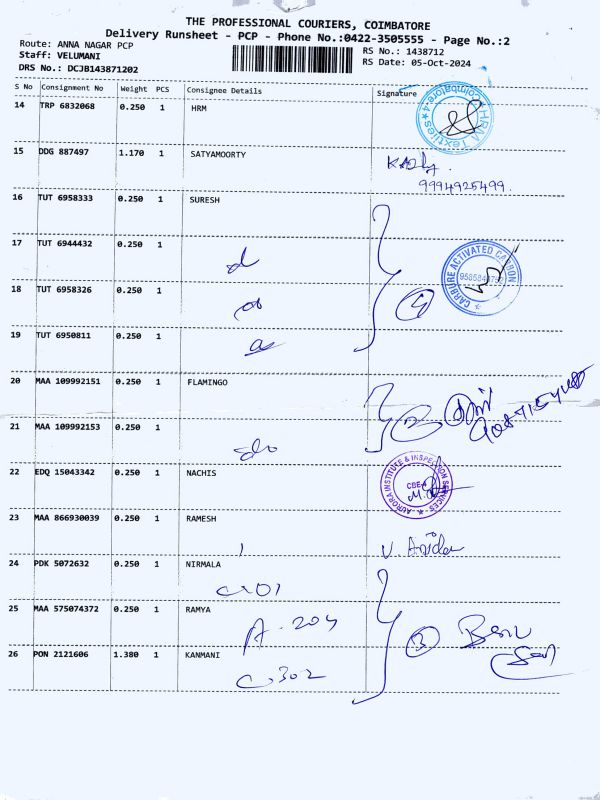 THE PROFESSIONAL COURIERS, COIMBATORE
Delivery Runsheet - PCP - Phone No.:0422-3505555 - Page No.:2
Route: ANNA NAGAR PCP
RS No.: 1438712
Staff: VELUMANI
RS Date: 05-Oct-2024
DRS No.: DCJB143871202
S No Consignment No Weight PCS Consignee Details Signature
14 TRP 6832068 0.250 1 HRM
15 DDG 887497 1.170 1 SATYAMOORTY
9994925499.
16 TUT 6958333 0.250 1 SURESH
17 TUT 6944432 0.250 1
CARBURE ACTIVATED CARBON
18 TUT 6958326 0.250 1
4
19 TUT 6950811 0.250 1
20 MAA 109992151 0.250 1 FLAMINGO
2
21 MAA 109992153 0.250 1
do
22 EDQ 15043342 0.250 1 NACHIS
AURORA INSTITUTE & INSPECTION SERVICES
CBE-4
23 MAA 866930039 0.250 1 RAMESH
24 PDK 5072632 0.250 1 NIRMALA
C-01
25 MAA 575074372 0.250 1 RAMYA
A-204
3
26 PON 2121606 1.380 1 KANMANI
C-302